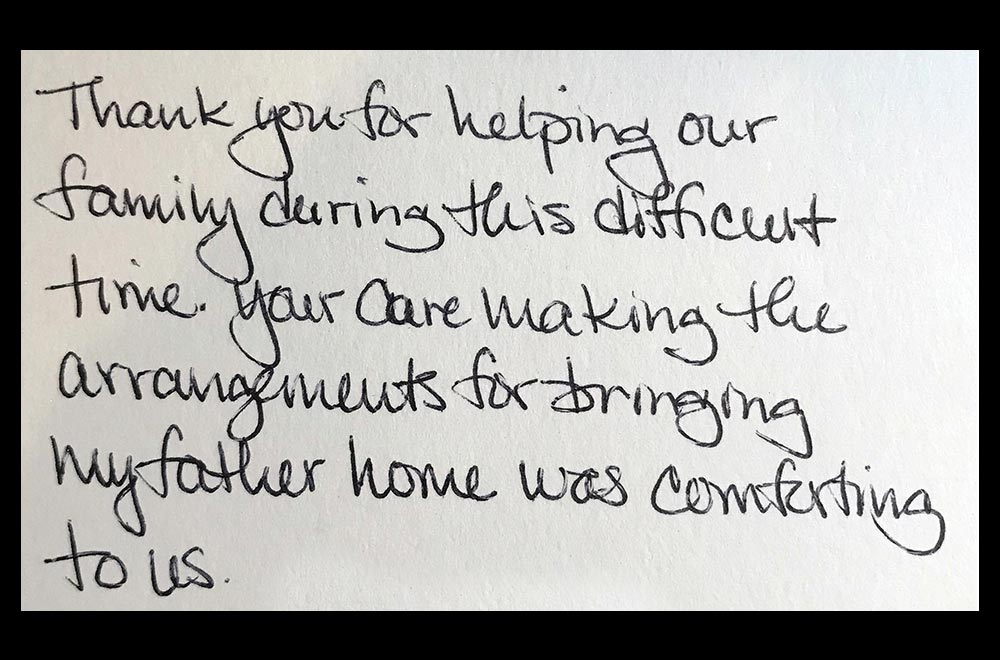 Thank you for helping our
family during this difficult
time. Your care making the
arrangements for bringing
my father home was comforting
to us.